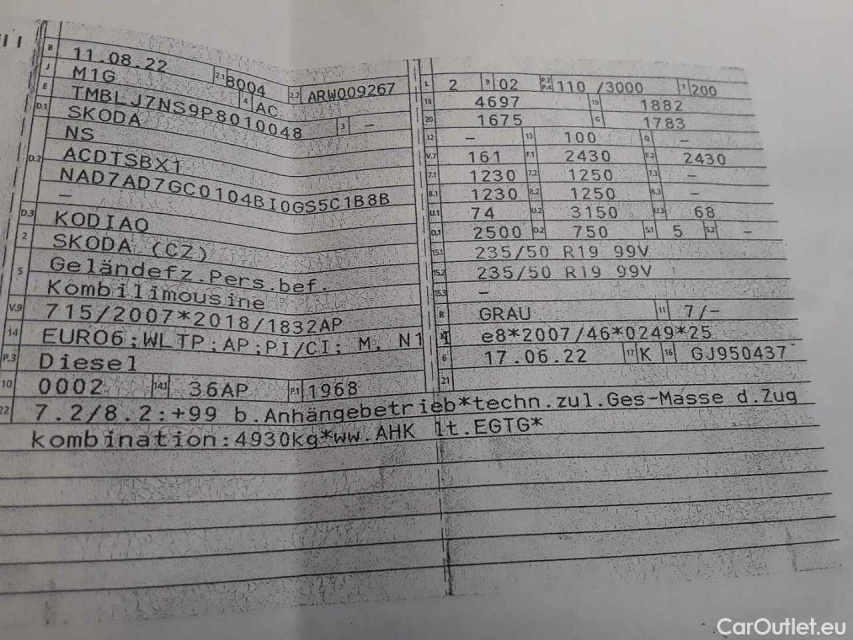 B 11.08.22 2.1 8004 2.2 ARW009267
J M1G 4 AC
E TMBLJ7NS9P8010048 3 –
D.1 SKODA
NS
D.2 ACDTSBX1
NAD7AD7GC0104BI0GS5C1B8B
–
D.3 KODIAQ
2 SKODA (CZ)
5 Geländefz.Pers.bef.
Kombilimousine
V.9 715/2007*2018/1832AP
14 EURO6;WLTP;AP;PI/CI; M, N1
P.3 Diesel
10 0002 14.1 36AP P.1 1968
L 2 9 02 P.2 P.4 110 /3000 T 200
18 4697 19 1882
20 1675 G 1783
12 – 13 100 Q –
V.7 161 F.1 2430 F.2 2430
7.1 1230 7.2 1250 7.3 –
8.1 1230 8.2 1250 8.3 –
U.1 74 U.2 3150 U.3 68
O.1 2500 O.2 750 S.1 5 S.2 –
15.1 235/50 R19 99V
15.2 235/50 R19 99V
15.3 –
R GRAU 11 7/–
K e8*2007/46*0249*25
6 17.06.22 17 K 16 GJ950437
21
22 7.2/8.2:+99 b.Anhängebetrieb*techn.zul.Ges-Masse d.Zug
kombination:4930kg*ww.AHK lt.EGTG*
CarOutlet.eu